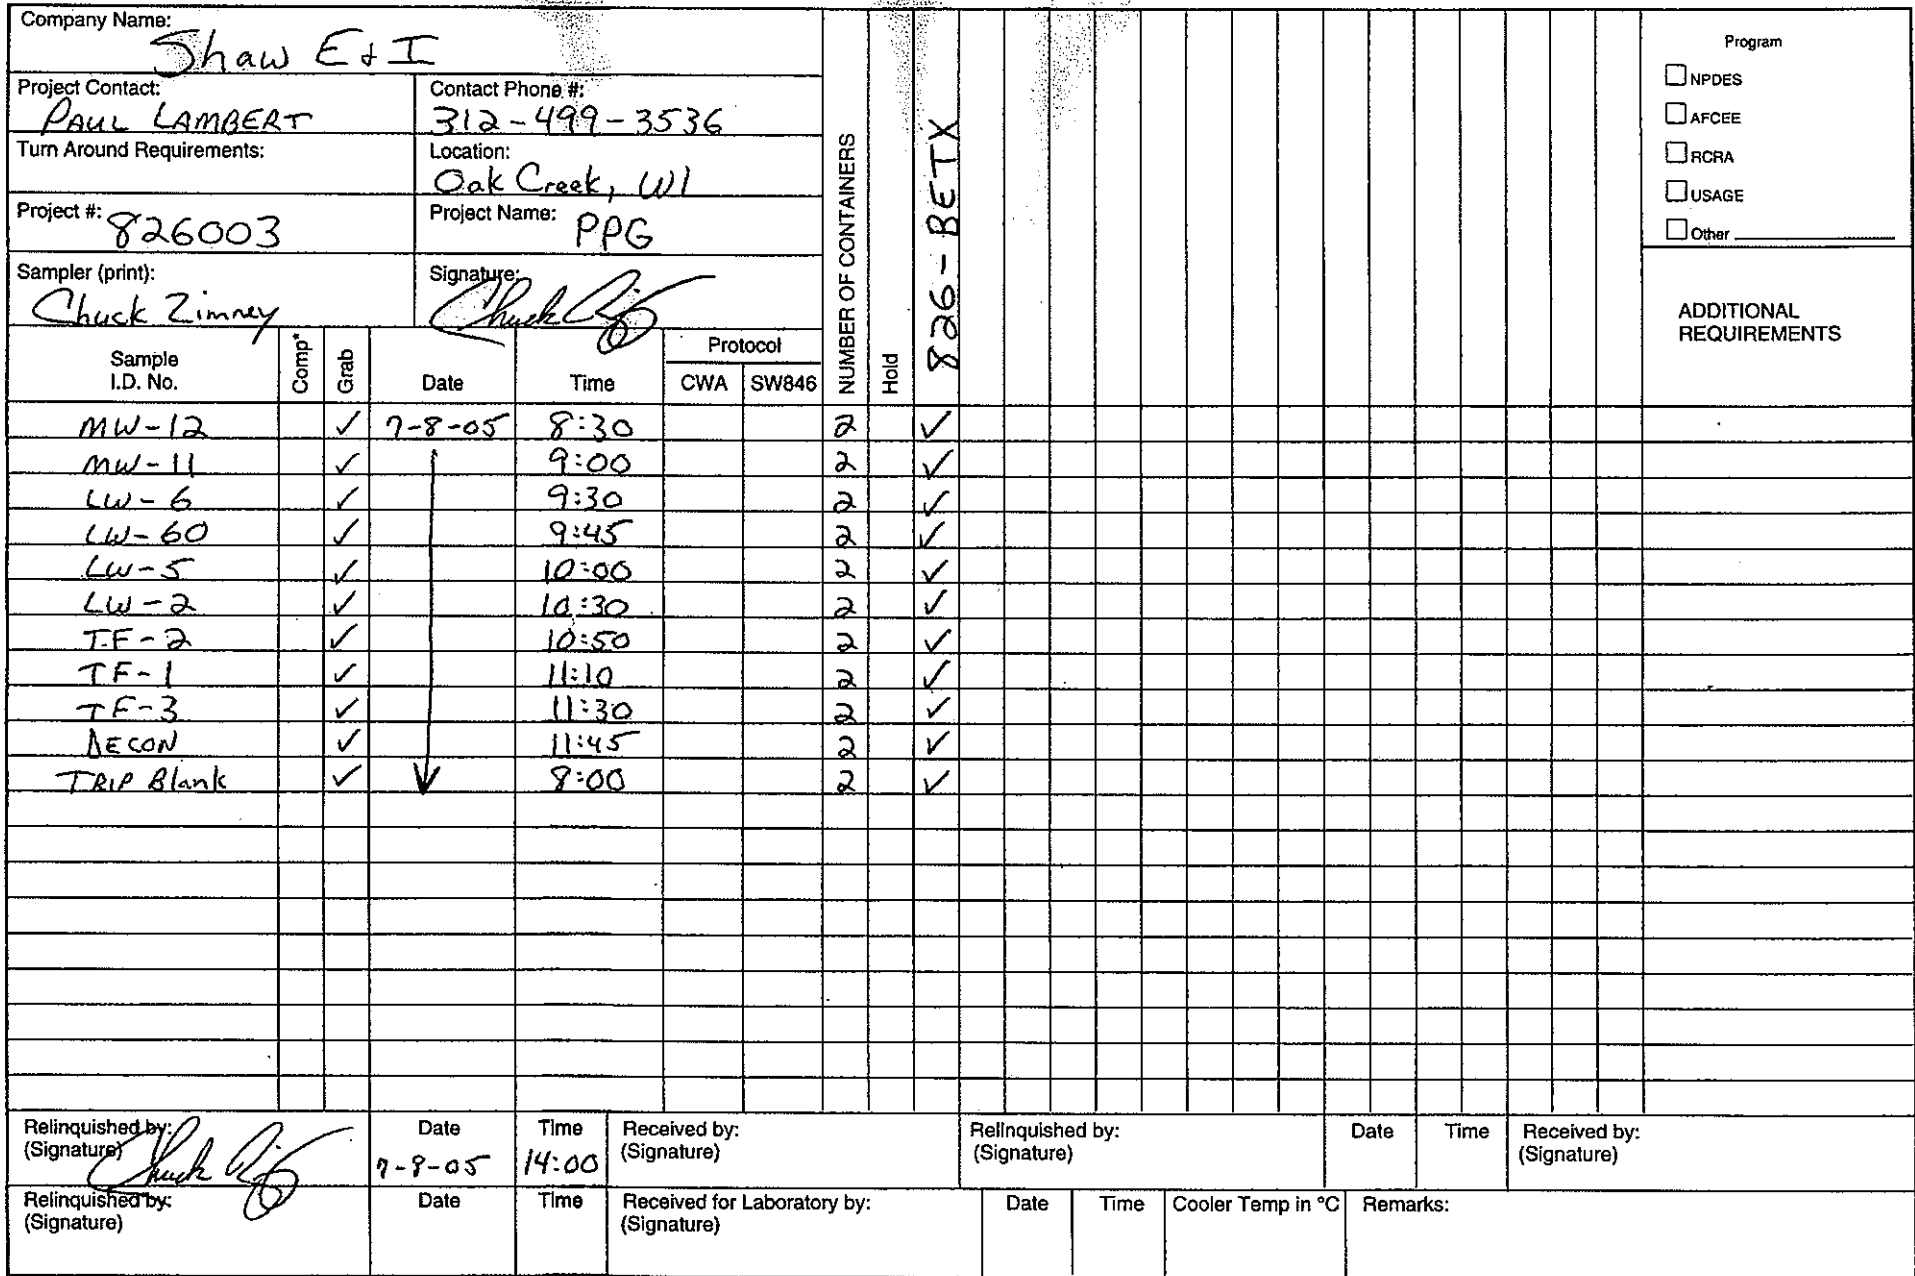 Company Name:
Shaw E & I
Project Contact:
PAUL LAMBERT
Contact Phone #:
312-499-3536
Turn Around Requirements:
Location:
Oak Creek, WI
Project #: 826003
Project Name: PPG
Sampler (print):
Chuck Zimney
Signature:
NUMBER OF CONTAINERS
Hold
826-BETX
Program
NPDES
AFCEE
RCRA
USAGE
Other
ADDITIONAL
REQUIREMENTS
Sample
I.D. No.
Comp*
Grab
Date
Time
Protocol
CWA SW846
MW-12 ✓ 7-8-05 8:30 2 ✓
MW-11 ✓ 9:00 2 ✓
LW-6 ✓ 9:30 2 ✓
LW-60 ✓ 9:45 2 ✓
LW-5 ✓ 10:00 2 ✓
LW-2 ✓ 10:30 2 ✓
TF-2 ✓ 10:50 2 ✓
TF-1 ✓ 11:10 2 ✓
TF-3 ✓ 11:30 2 ✓
DECON ✓ 11:45 2 ✓
TRIP Blank ✓ 8:00 2 ✓
Relinquished by:
(Signature)
Date
7-8-05
Time
14:00
Received by:
(Signature)
Relinquished by:
(Signature)
Date
Time
Received by:
(Signature)
Relinquished by:
(Signature)
Date
Time
Received for Laboratory by:
(Signature)
Date
Time
Cooler Temp in °C
Remarks: